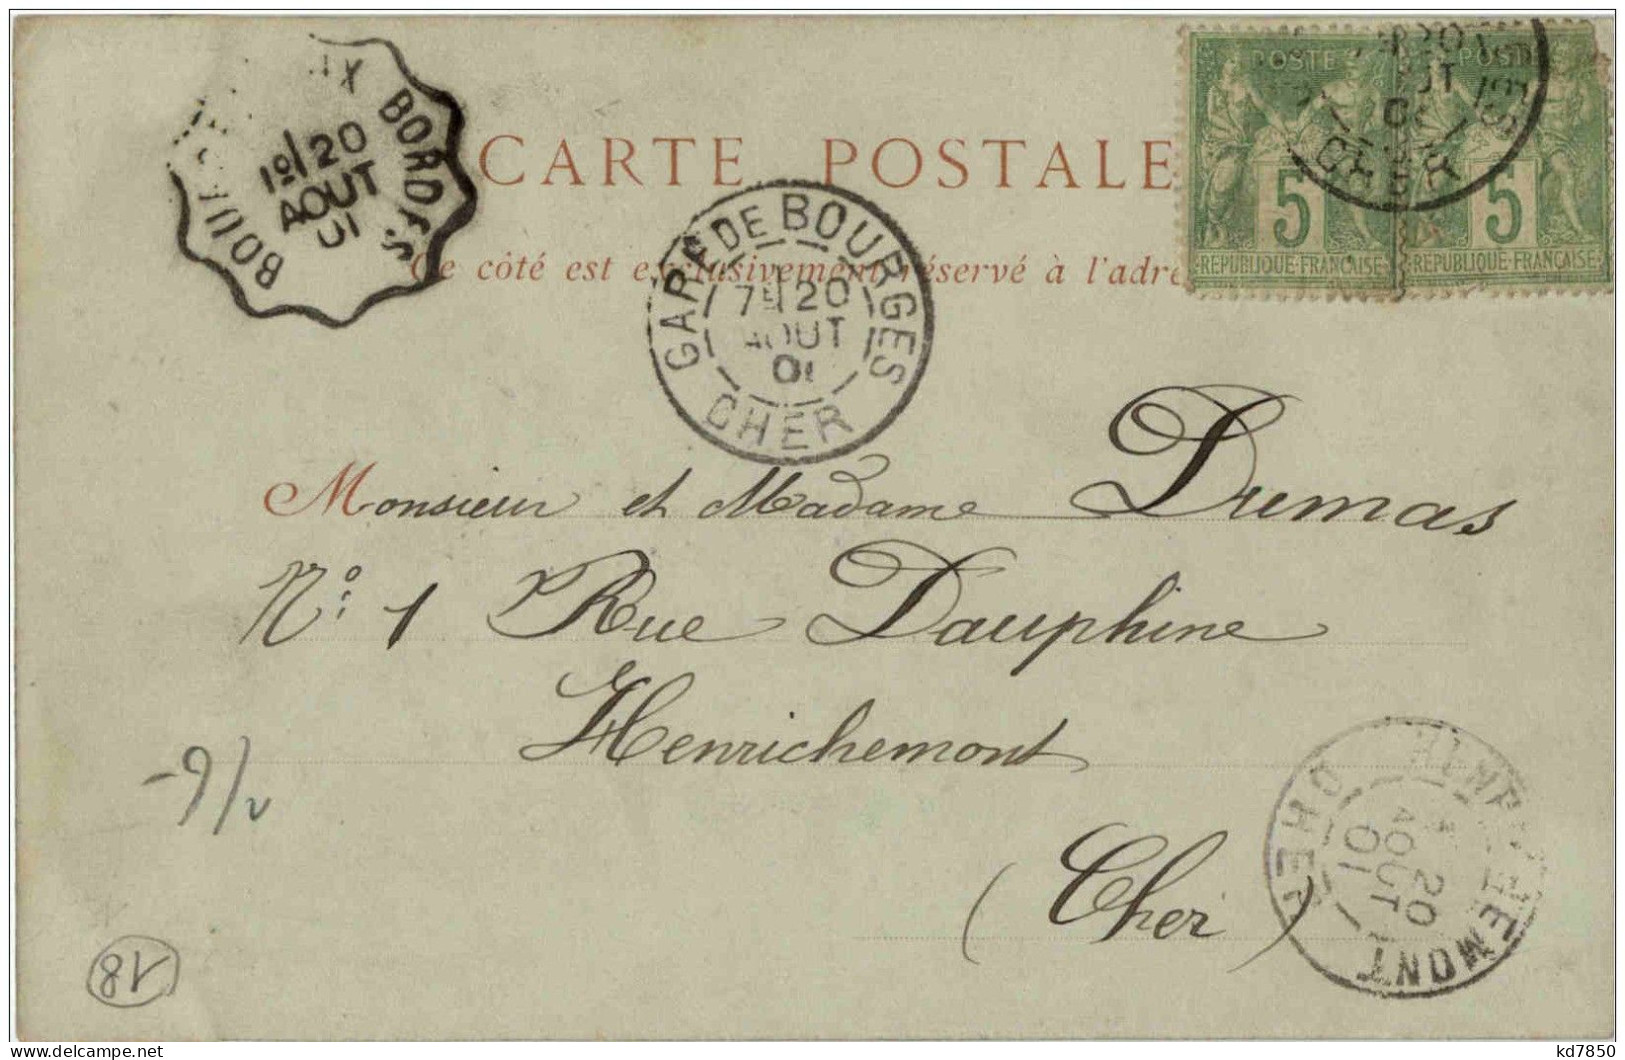 CARTE POSTALE
Ce côté est exclusivement réservé à l'adre
BORDES
1º/20
AOUT
01
GARE DE BOURGES
7E/20
AOUT
01
CHER
POSTE
5
REPUBLIQUE FRANÇAISE
POSTE
5
REPUBLIQUE FRANÇAISE
CHER
Monsieur et Madame Dumas
Nº: 1 Rue Dauphine
Henrichemont
(Cher)
CHER
20
AOUT
01
-9/2
18
kd7850